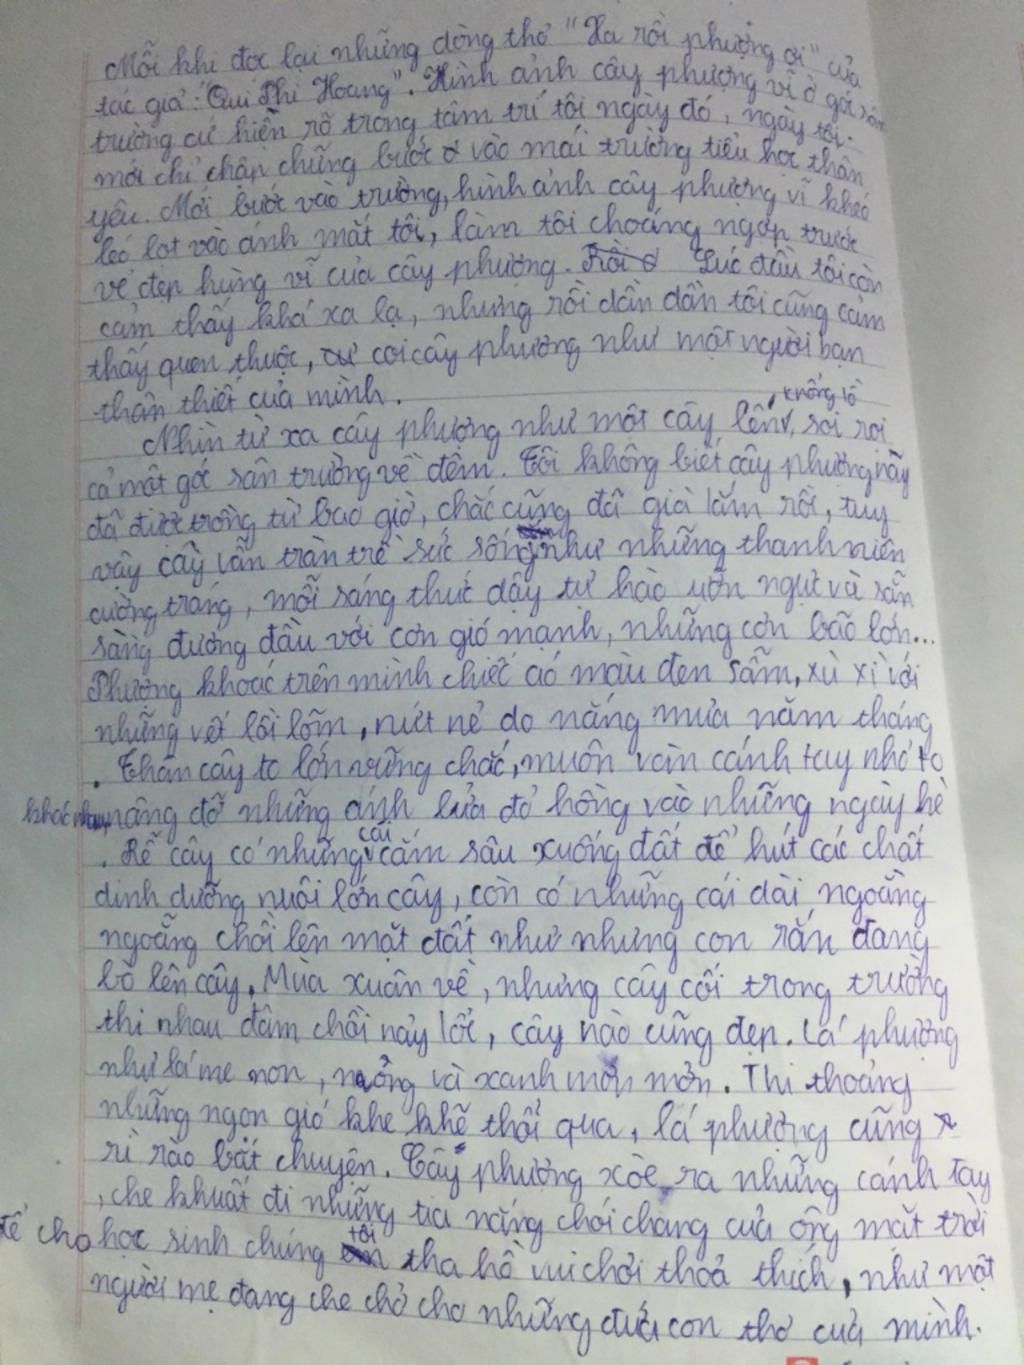 Mỗi khi đọc lại những dòng thơ "Xa rồi phượng ơi" của
tác giả: "Quí Phi Hoang". Hình ảnh cây phượng vĩ ở góc sân
trường cứ hiển rõ trong tâm trí tôi ngày đó, ngày tôi
mới chỉ chập chững bước vào mái trường tiểu học thân
yêu. Mới bước vào trường, hình ảnh cây phượng vĩ khéo
léo lọt vào ánh mắt tôi, làm tôi choáng ngợp trước
vẻ đẹp hùng vĩ của cây phượng. Lúc đầu tôi còn
cảm thấy khá xa lạ, nhưng rồi dần dần tôi cũng cảm
thấy quen thuộc, coi cây phượng như một người bạn
thân thiết của mình.
Nhìn từ xa cây phượng như một cây lến khổng lồ, soi rọi
cả một góc sân trường về đêm. Tôi không biết cây phượng này
đã được trồng từ bao giờ, chắc cũng đã già lắm rồi, tuy
vậy cây vẫn tràn trề sức sống như những thanh niên
cường tráng, mỗi sáng thức dậy tự hào ưỡn ngực và sẵn
sàng đương đầu với cơn gió mạnh, những cơn bão lớn...
Phượng khoác trên mình chiếc áo màu đen sẫm, xù xì với
những vết lồi lõm, nứt nẻ do nắng mưa năm tháng
. Thân cây to lớn vững chắc, muôn vàn cánh tay nhỏ to
khác nhau nâng đỡ những ánh lửa đỏ hồng vào những ngày hè
. Rễ cây có những cái cắm sâu xuống đất để hút các chất
dinh dưỡng nuôi lớn cây, còn có những cái dài ngoằng
ngoẵng chồi lên mặt đất như nhưng con rắn đang
bò lên cây. Mùa xuân về, nhưng cây cối trong trường
thi nhau đâm chồi nảy lốt, cây nào cũng đẹp. Lá phượng
như lá me non, mỏng và xanh mơn mởn. Thi thoảng
những ngọn gió khe khẽ thổi qua, lá phượng cũng
rì rào bắt chuyện. Cây phượng xòe ra những cánh tay
, che khuất đi những tia nắng chói chang của ông mặt trời
để cho học sinh chúng tôi tha hồ vui chơi thoả thích, như một
người mẹ đang che chở cho những đứa con thơ của mình.